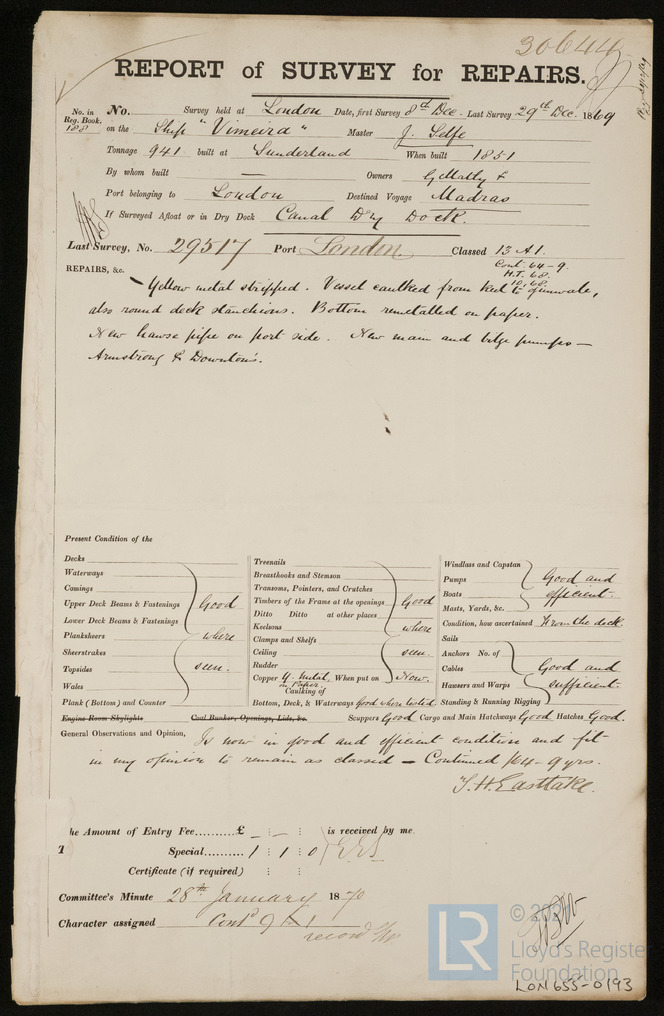 30644
REPORT of SURVEY for REPAIRS.
No. in Reg. Book. 188
No. Survey held at London Date, first Survey 8th Dec. Last Survey 29th Dec. 1869
on the Ship "Vimeira" Master J. Selfe
Tonnage 941 built at Sunderland When built 1851
By whom built — Owners Gellatly &
Port belonging to London Destined Voyage Madras
If Surveyed Afloat or in Dry Dock Canal Dry Dock.
Last Survey, No. 29517 Port London. Classed 13 A1.
Cont. 64-9.
H.T. 68.
12,68
REPAIRS, &c.
Yellow metal stripped. Vessel caulked from keel to gunwale,
also round deck stanchions. Bottom remetalled on paper.
New hawse pipe on port side. New main and bilge pumps —
Armstrong & Downton's.
Present Condition of the
Decks
Waterways
Comings
Upper Deck Beams & Fastenings
Lower Deck Beams & Fastenings
Planksheers
Sheerstrakes
Topsides
Wales
Plank (Bottom) and Counter
Good
where
seen.
Treenails
Breasthooks and Stemson
Transoms, Pointers, and Crutches
Timbers of the Frame at the openings
Ditto Ditto at other places
Keelsons
Clamps and Shelfs
Ceiling
Rudder
Good
where
seen.
Copper Y. Metal on Paper When put on Now.
Caulking of
Bottom, Deck, & Waterways Good where tested
Windlass and Capstan
Pumps
Boats
Masts, Yards, &c.
Good and
efficient.
Condition, how ascertained From the deck.
Sails
Anchors No. of
Cables
Hawsers and Warps
Standing & Running Rigging
Good and
sufficient.
Engine Room Skylights Coal Bunker, Openings, Lids, &c. Scuppers Good Cargo and Main Hatchways Good Hatches Good.
General Observations and Opinion, Is now in good and efficient condition and fit
in my opinion to remain as classed — Continued 1864-9 yrs.
T. H. Eastlake.
he Amount of Entry Fee..........£ — : — : is received by me
Special..........1 : 1 : 0
Certificate (if required)
Committee's Minute 28th January 1870
Character assigned Contd 9 A 1
record
© 202
LR
Lloyd's Register
Foundation
LON655-0193